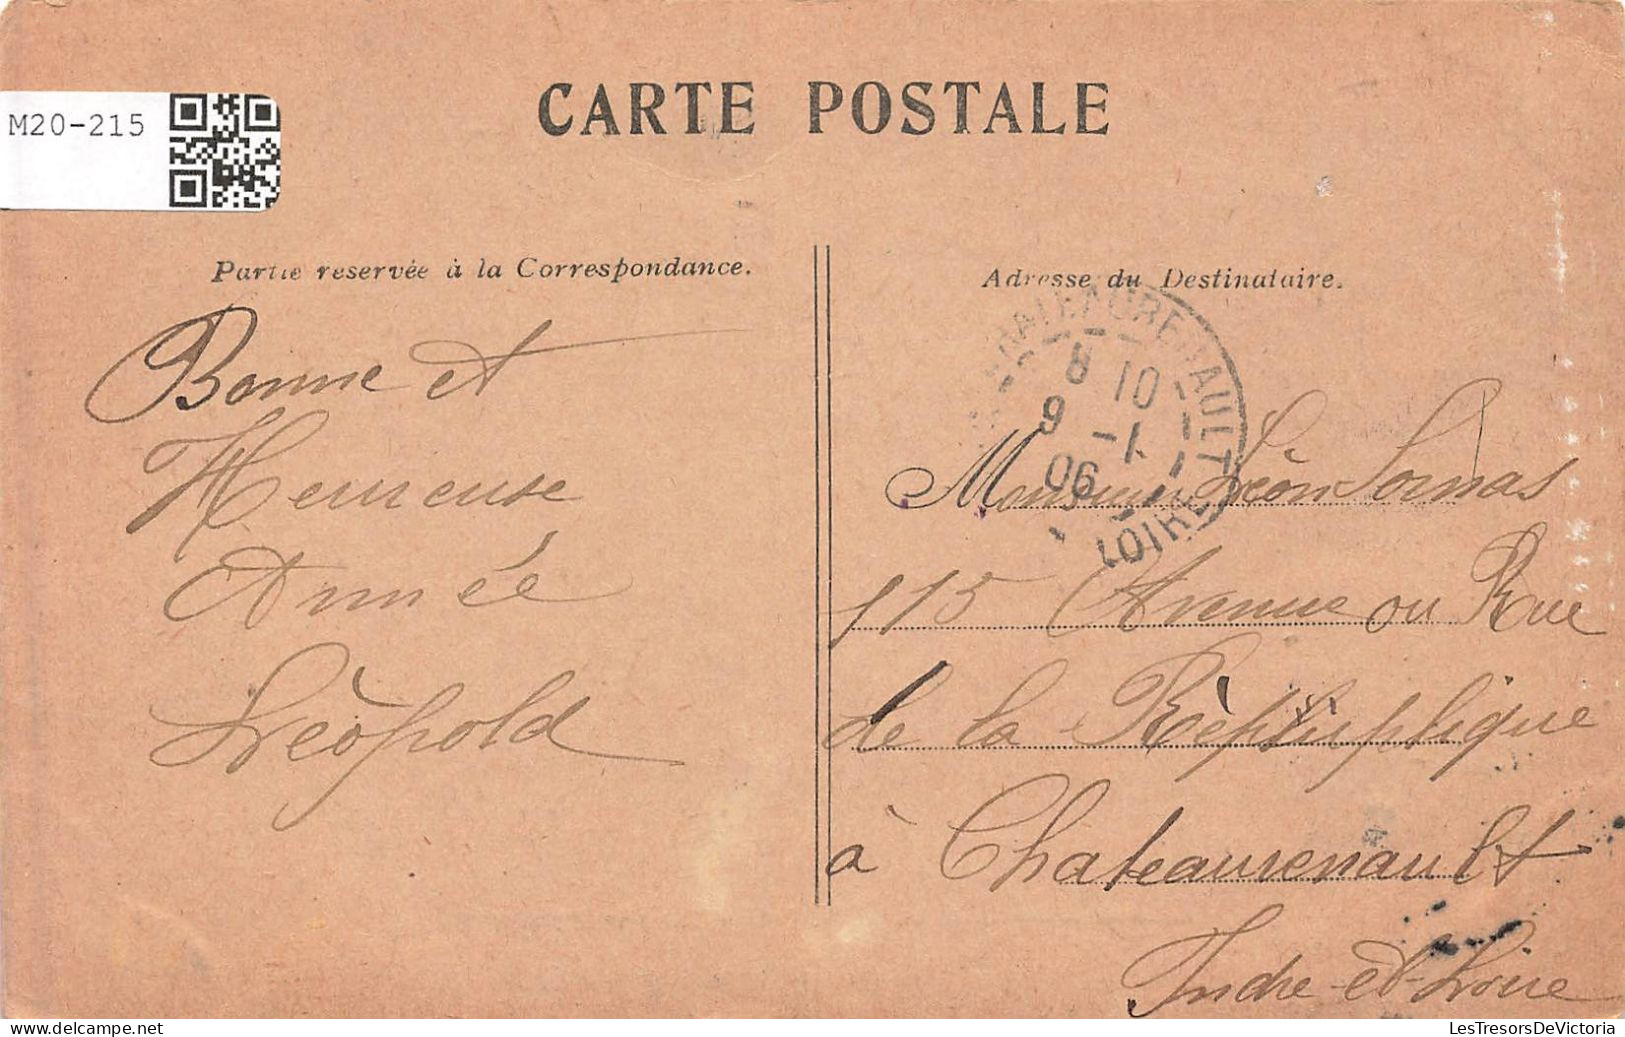 M20-215
CARTE POSTALE
Partie reservée à la Correspondance.
Adresse du Destinataire.
Bonne et
Heureuse
Année
Lréopold
CHATEAURENAULT
8 10
9 -1
06
LOIRE
Monsieur Léon
115 Avenue ou Rue
de la Rèpuplique
à Chateaurenault
Indre-et-Loire
LesTresorsDeVictoria
www.delcampe.net